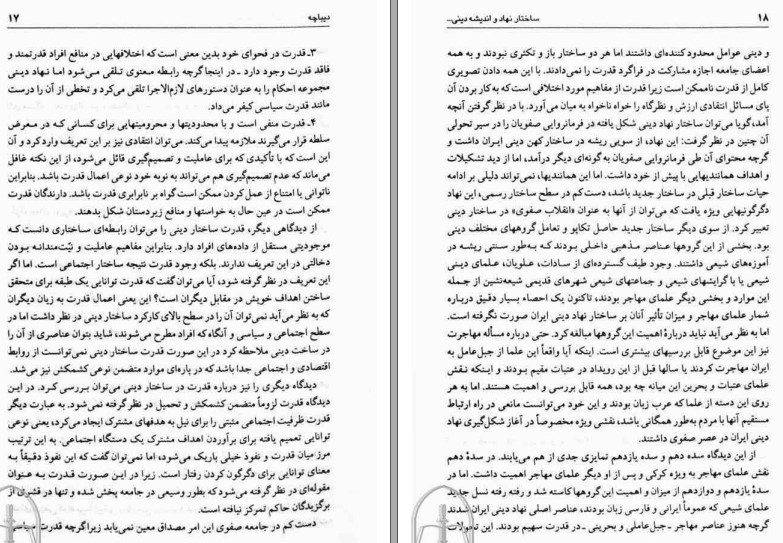 دیباچه ۱۷
۳ـ قدرت در فحوای خود بدین معنی است که اختلافهایی در منافع افراد قدرتمند و
فاقد قدرت وجود دارد ـ در اینجا گرچه رابطه معنوی تلقی می‌شود اما نهاد دینی
مجموعه احکام را به عنوان دستورهای لازم‌الاجرا تلقی می‌کرد و تخطی از آن را درست
مانند قدرت سیاسی کیفر می‌داد.
۴ـ قدرت منفی است و با محدودیتها و محرومیتهایی برای کسانی که در معرض
سلطه قرار می‌گیرند ملازمه پیدا می‌کند. می‌توان انتقادی نیز بر این تعریف وارد کرد و آن
این است که با تأکیدی که برای عاملیت و تصمیم‌گیری قائل می‌شود، از این نکته غافل
می‌ماند که عدم تصمیم‌گیری هم می‌تواند به نوبه خود نوعی اعمال قدرت باشد. بنابراین
ناتوانی یا امتناع از عمل کردن ممکن است گواه بر نابرابری قدرت باشد. دارندگان قدرت
ممکن است در عین حال به خواستها و منافع زیردستان شکل بدهند.
از دیدگاهی دیگر، قدرت ساختار دینی را می‌توان رابطه‌ای ساختاری دانست که
موجودیتی مستقل از داده‌های افراد دارد. بنابراین مفاهیم عاملیت و نیّت‌مندانه بودن
دخالتی در این تعریف ندارند. بلکه وجود قدرت نتیجه ساختار اجتماعی است. اما اگر
این تعریف در نظر گرفته شود، آیا می‌توان گفت که قدرت توانایی یک طبقه برای متحقق
ساختن اهداف خویش در مقابل دیگران است؟ این یعنی اعمال قدرت به زیان دیگران
که به نظر می‌آید نمی‌توان آن را در سطح بالای کارکرد ساختار دینی در نظر داشت اما در
سطح اجتماعی و سیاسی و آنگاه که افراد مطرح می‌شوند، شاید بتوان عناصری از آن را
در ساخت دینی ملاحظه کرد در این صورت قدرت ساختار دینی نمی‌توانست از روابط
اقتصادی و اجتماعی جدا باشد که در پاره‌ای موارد متضمن نوعی کشمکش نیز می‌شد.
دیدگاه دیگری را نیز درباره قدرت در ساختار دینی می‌توان بررسی کرد. در این
دیدگاه قدرت لزوماً متضمن کشمکش و تحمیل در نظر گرفته نمی‌شود. به عبارت دیگر
قدرت ظرفیت اجتماعی مثبتی را برای نیل به هدفهای مشترک ایجاد می‌کرد، یعنی نوعی
توانایی تعمیم یافته برای برآوردن اهداف مشترک یک دستگاه اجتماعی. به این ترتیب
مرز میان قدرت و نفوذ خیلی باریک می‌شود، اما نمی‌توان گفت که این نفوذ دقیقاً به
معنای توانایی برای دگرگون کردن رفتار است. زیرا در این صورت قدرت به عنوان
مقوله‌ای در نظر گرفته می‌شود که بطور وسیعی در جامعه پخش شده و تنها در قشری از
برگزیدگان حاکم تمرکز نیافته است.
دست کم در جامعه صفوی این امر مصداق معین نمی‌یابد زیرا گرچه قدرت سیاسی
۱۸ ساختار نهاد و اندیشه دینی...
و دینی عوامل محدودکننده‌ای داشتند اما هر دو ساختار باز و تکثری نبودند و به همه
اعضای جامعه اجازه مشارکت در فراگرد قدرت را نمی‌دادند. با این همه دادن تصویری
کامل از قدرت ناممکن است زیرا قدرت از مفاهیم مورد اختلافی است که به کار بردن آن
پای مسائل انتقادی ارزش و نظرگاه را خواه ناخواه به میان می‌آورد. با در نظر گرفتن آنچه
آمد، گویا می‌توان ساختار نهاد دینی شکل یافته در فرمانروایی صفویان را در سیر تحولی
آن چنین در نظر گرفت: این نهاد، از سویی ریشه در ساختار کهن دینی ایران داشت و
گرچه محتوای آن طی فرمانروایی صفویان به گونه‌ای دیگر درآمد، اما از دید تشکیلات
و اهداف همانندیهایی با پیش از خود داشت. اما این همانندیها، نمی‌تواند دلیلی بر ادامه
حیات ساختار قبلی در ساختار جدید باشد، دست کم در سطح ساختار رسمی، این نهاد
دگرگونیهایی ویژه یافت که می‌توان از آنها به عنوان «انقلاب صفوی» در ساختار دینی
تعبیر کرد. از سوی دیگر ساختار جدید حاصل تکاپو و تعامل گروههای مختلف دینی
بود. بخشی از این گروهها عناصر مذهبی داخلی بودند که به‌طور سنتی ریشه در
آموزه‌های شیعی داشتند. وجود طیف گسترده‌ای از سادات، علویان، علمای دینی
شیعی یا با گرایشهای شیعی و جماعتهای شیعی شهرهای قدیمی شیعه‌نشین از جمله
این موارد و بخشی دیگر علمای مهاجر بودند، تاکنون یک احصاء بسیار دقیق درباره
شمار علمای مهاجر و میزان تأثیر آنان بر ساختار نهاد دینی ایران صورت نگرفته است.
اما به نظر می‌آید نباید درباره اهمیت این گروهها مبالغه کرد. حتی درباره مسأله مهاجرت
نیز این موضوع قابل بررسیهای بیشتری است. اینکه آیا واقعاً این علما از جبل‌عامل به
ایران مهاجرت کردند یا سالها قبل از این رویداد در عتبات مقیم بودند و اینکه نقش
علمای عتبات و بحرین این میانه چه بود، همه قابل بررسی و اهمیت هستند. اما به هر
روی این دسته از علما که عرب زبان بودند و این خود می‌توانست مانعی در راه ارتباط
مستقیم آنها با مردم به‌طور همگانی باشد، نقشی ویژه مخصوصاً در آغاز شکل‌گیری نهاد
دینی ایران در عصر صفوی داشتند.
از این دیدگاه سده دهم و سده یازدهم تمایزی جدی از هم می‌یابند. در سدهٔ دهم
نقش علمای مهاجر به ویژه کرکی و پس از او دیگر علمای مهاجر اهمیت داشت. اما در
سدهٔ یازدهم و دوازدهم از میزان و اهمیت این گروهها کاسته شد و رفته رفته نسل جدید
علمای شیعی که عموماً ایرانی و فارسی زبان بودند، عناصر اصلی نهاد دینی ایران شدند
گرچه هنوز عناصر مهاجر ـ جبل‌عاملی و بحرینی ـ در قدرت سهیم بودند. این تحولات